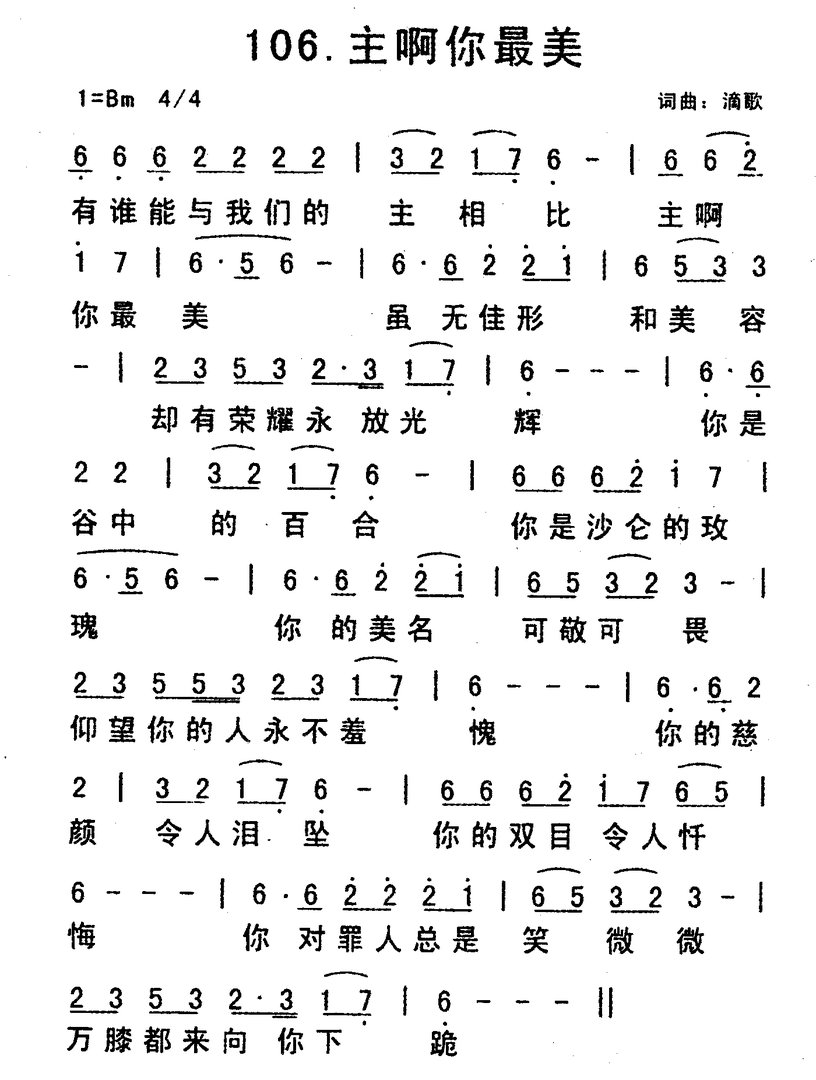 106.主啊你最美
1=Bm 4/4 词曲：滴歌
6 6 6 2 2 2 2 | 3 2 1 7 6 - | 6 6 2
有谁能与我们的 主 相 比 主啊
1 7 | 6 · 5 6 - | 6 · 6 2 2 1 | 6 5 3 3
你最 美 虽 无佳形 和美 容
- | 2 3 5 3 2 · 3 1 7 | 6 - - - | 6 · 6
却有荣耀永 放光 辉 你是
2 2 | 3 2 1 7 6 - | 6 6 6 2 1 7 |
谷中 的 百 合 你是沙仑的玫
6 · 5 6 - | 6 · 6 2 2 1 | 6 5 3 2 3 - |
瑰 你 的美名 可敬可 畏
2 3 5 5 3 2 3 1 7 | 6 - - - | 6 · 6 2
仰望你的人永不羞 愧 你的慈
2 | 3 2 1 7 6 - | 6 6 6 2 1 7 6 5 |
颜 令人泪 坠 你的双目 令人忏
6 - - - | 6 · 6 2 2 2 1 | 6 5 3 2 3 - |
悔 你 对罪人总是 笑 微 微
2 3 5 3 2 · 3 1 7 | 6 - - - ||
万膝都来向 你下 跪